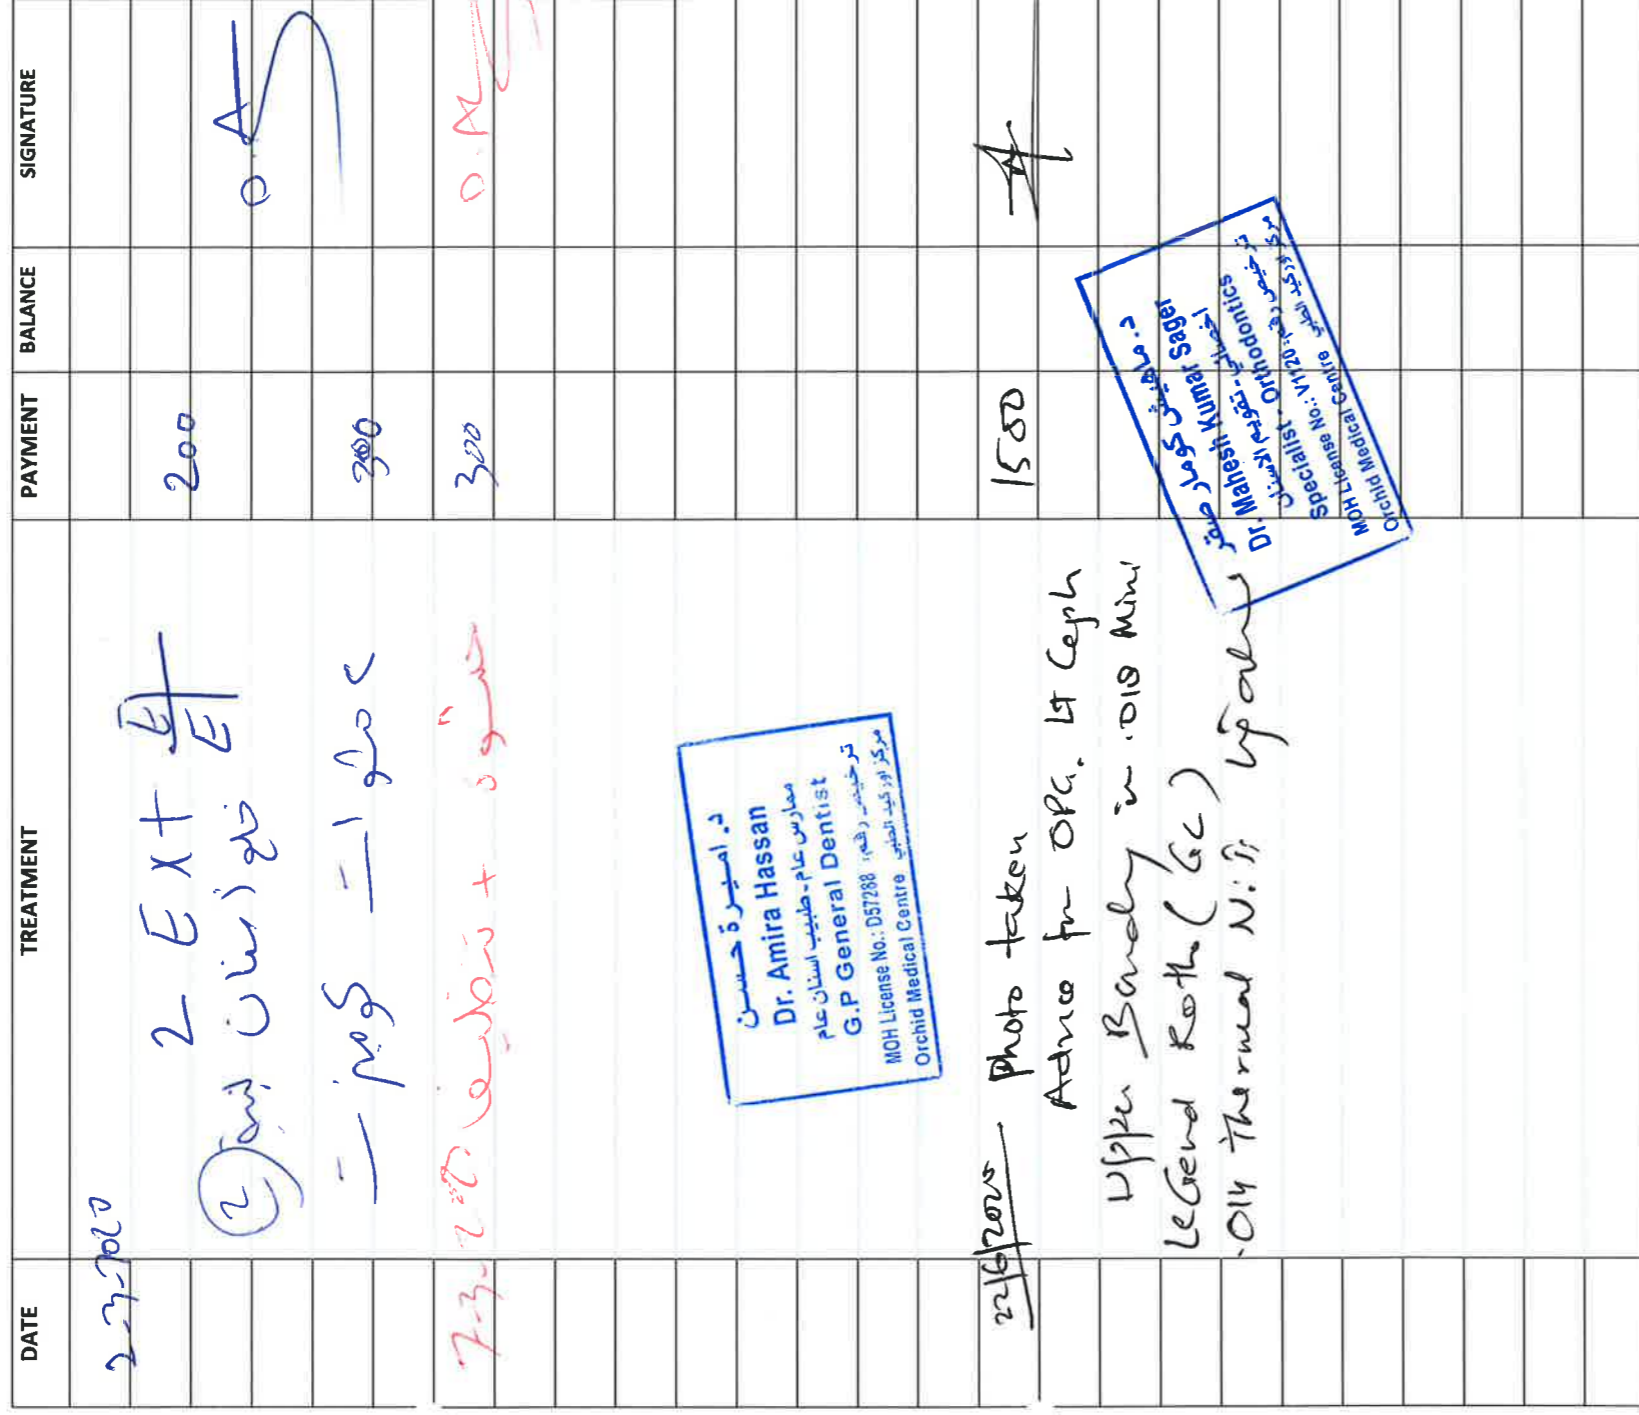 DATE TREATMENT PAYMENT BALANCE SIGNATURE
2-3-2020
2 EXt E E 200
2 خلع اسنان
300
7-3-2020 تنظيف + حشوة 300
د. اميرة حسن
Dr. Amira Hassan
ممارس عام - طبيب اسنان عام
G.P General Dentist
ترخيص رقم:
MOH License No.: D57288
مركز اوركيد الطبي
Orchid Medical Centre
22/6/2020 Photo taken 1500
Advice for OPG. Lt Ceph
Upper Bonding in .018 Mini
LeGend Roth (GC)
.014 Thermal Ni:Ti
د. ماهيش كومار صقر
Dr. Mahesh Kumar Sager
اخصائي - تقويم الاسنان
Specialist - Orthodontics
ترخيص رقم:
MOH License No.: V1120
مركز اوركيد الطبي
Orchid Medical Centre